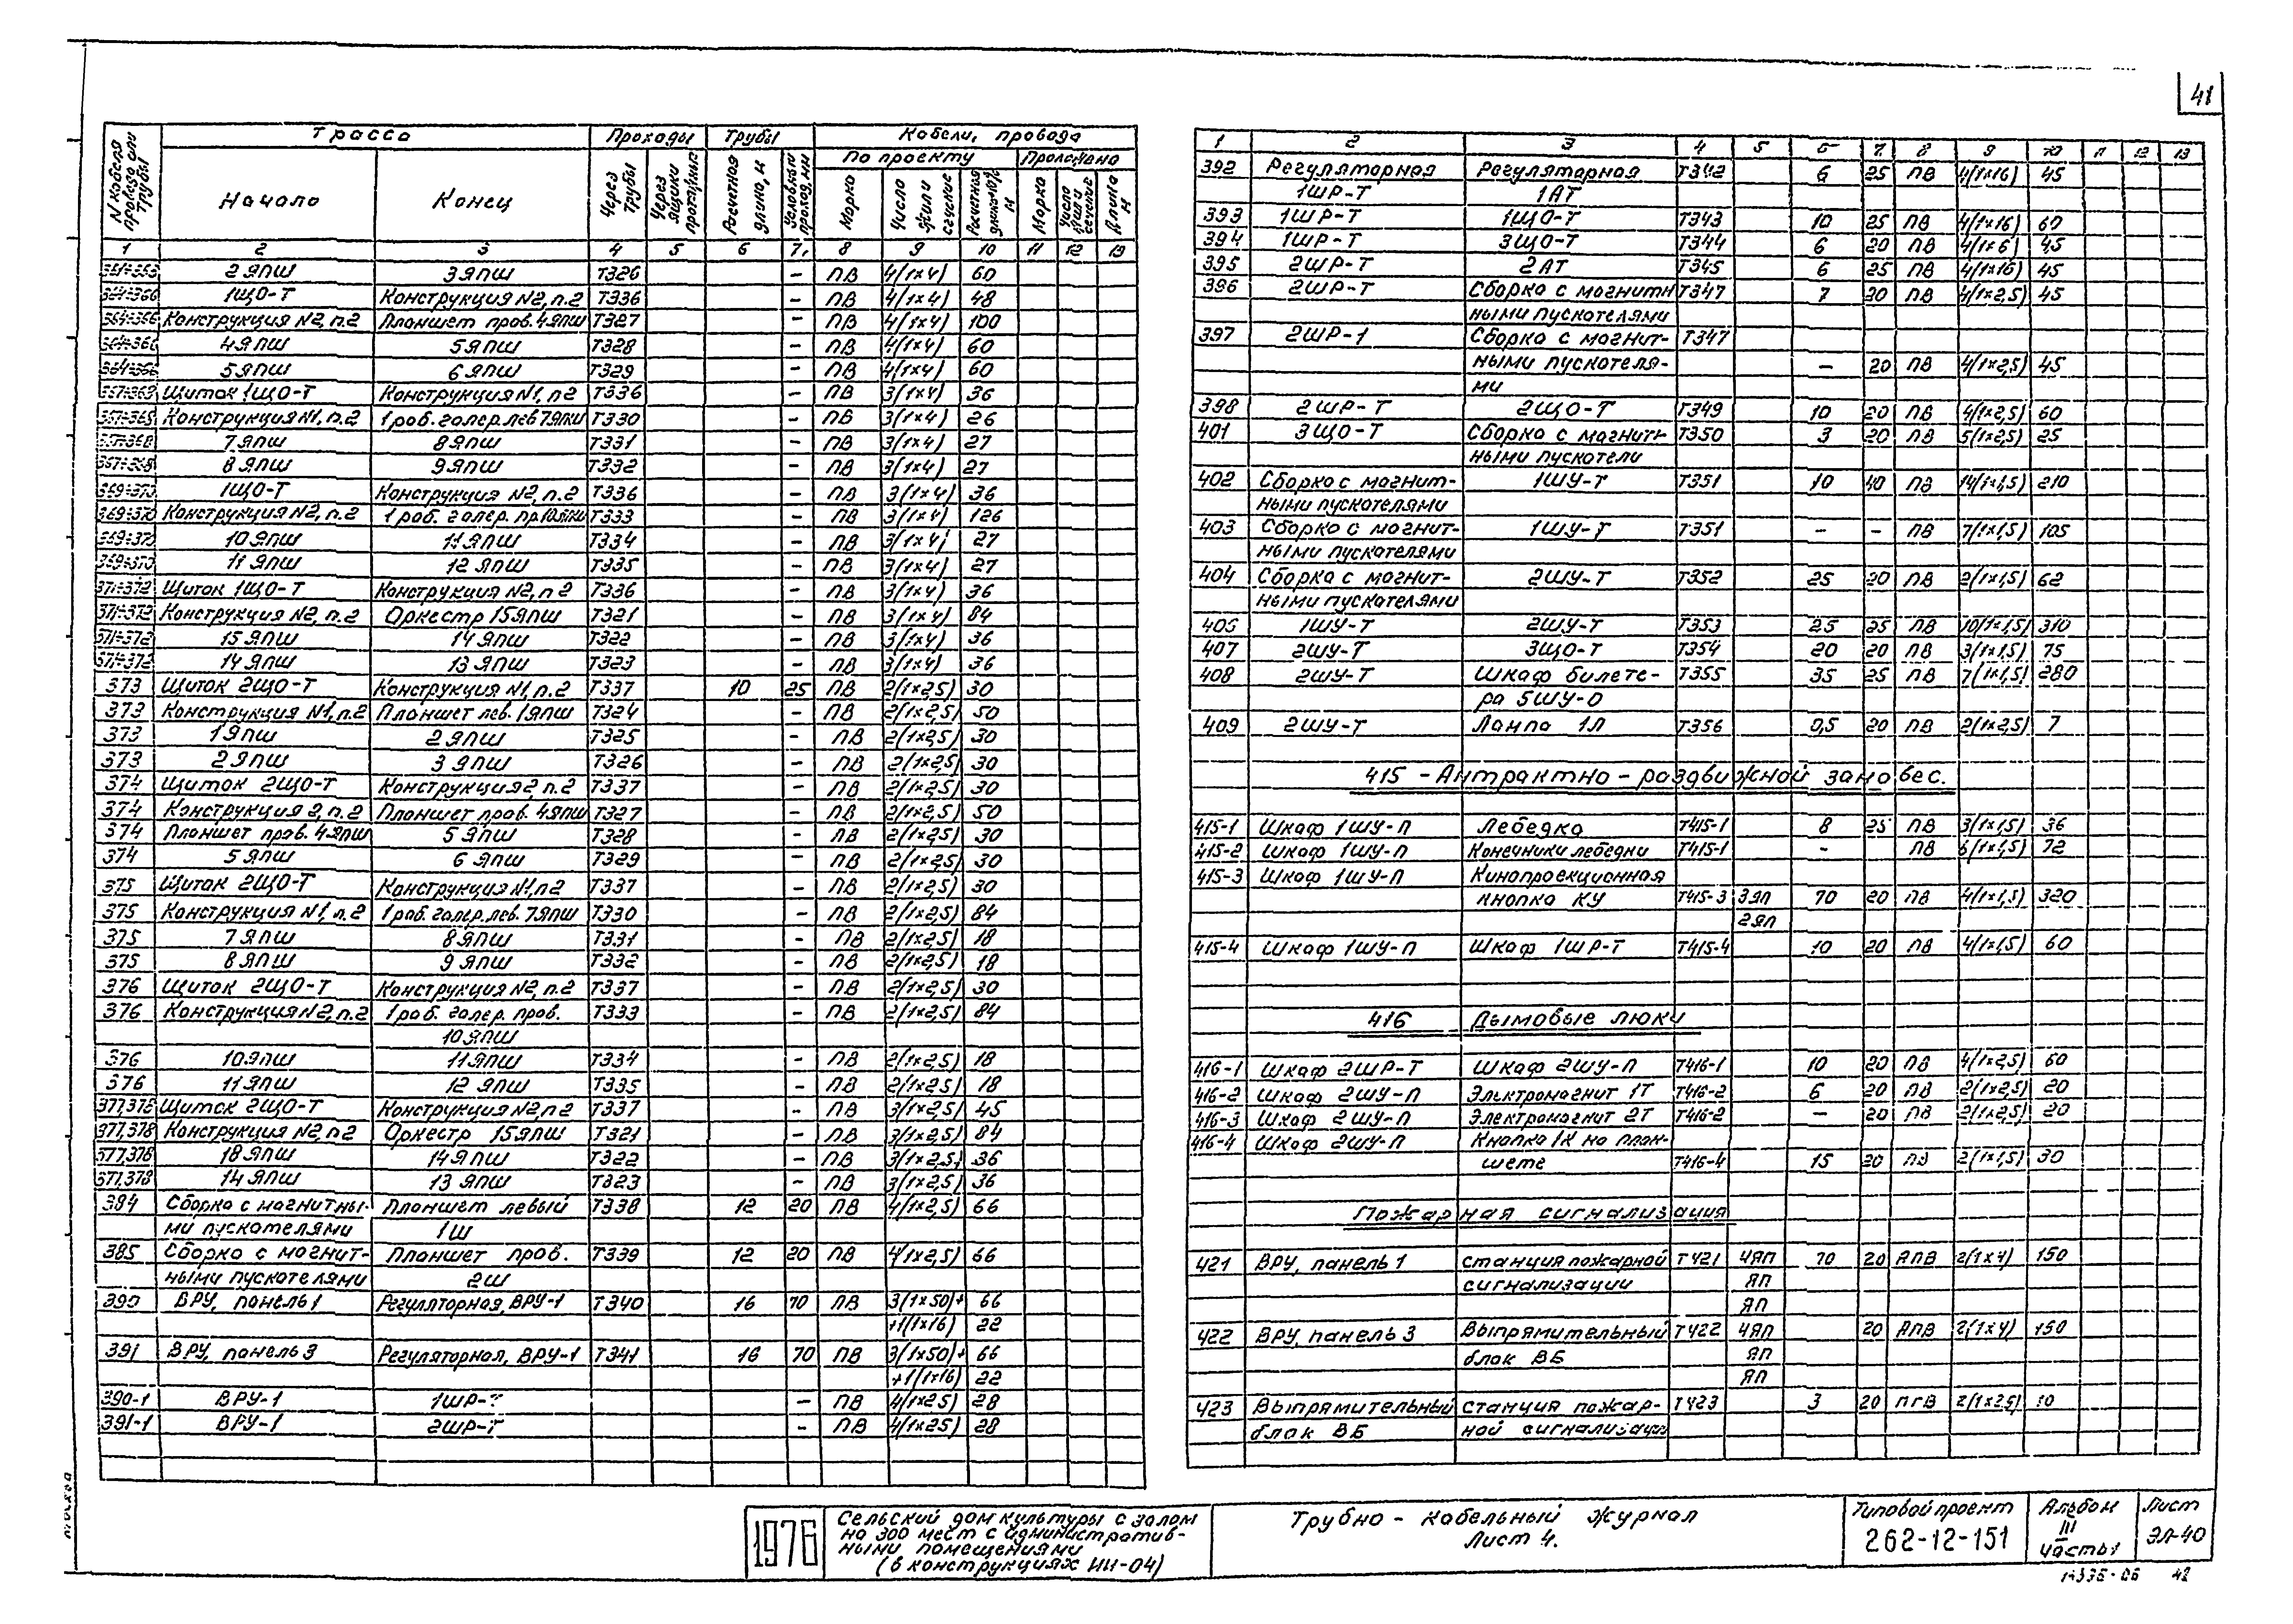 41
Трасса Проходы Трубы Кабели, провода
N кабеля провода или трубы Начало Конец Через трубы Через ящики протяжки Расчетная длина, м По проекту Проложено
Марка Число жил и сечение Марка Длина м
1 2 3 4 5 6 7 8 9 10 11 12 13
2ЯПШ 3ЯПШ Т326 – ПВ 4(1×4) 60
1ЩО-Т Конструкция №2, п.2 Т336 – ПВ 4(1×4) 48
Конструкция №2, п.2 Планшет прав. 4ЯПШ Т327 – ПВ 4(1×4) 100
4ЯПШ 5ЯПШ Т328 – ПВ 4(1×4) 60
5ЯПШ 6ЯПШ Т329 – ПВ 4(1×4) 60
Щиток 1ЩО-Т Конструкция №1, п2 Т336 – ПВ 3(1×4) 36
Конструкция №1, п.2 1 раб. галер. лев 7ЯПШ Т330 – ПВ 3(1×4) 26
7ЯПШ 8ЯПШ Т331 – ПВ 3(1×4) 27
8ЯПШ 9ЯПШ Т332 – ПВ 3(1×4) 27
1ЩО-Т Конструкция №2, п.2 Т336 – ПВ 3(1×4) 36
Конструкция №2, п.2 1 раб. галер. пр. 10ЯПШ Т333 – ПВ 3(1×4) 126
10ЯПШ 11ЯПШ Т334 – ПВ 3(1×4) 27
11ЯПШ 12ЯПШ Т335 – ПВ 3(1×4) 27
371÷372 Щиток 1ЩО-Т Конструкция №2, п2 Т336 – ПВ 3(1×4) 36
371÷372 Конструкция №2, п.2 Оркестр 15ЯПШ Т321 – ПВ 3(1×4) 84
371÷372 15ЯПШ 14ЯПШ Т322 – ПВ 3(1×4) 36
371÷372 14ЯПШ 13ЯПШ Т323 – ПВ 3(1×4) 36
373 Щиток 2ЩО-Т Конструкция №1, п.2 Т337 10 25 ПВ 2(1×2,5) 30
373 Конструкция №1, п.2 Планшет лев. 1ЯПШ Т324 – ПВ 2(1×2,5) 50
373 1ЯПШ 2ЯПШ Т325 – ПВ 2(1×2,5) 30
373 2ЯПШ 3ЯПШ Т326 – ПВ 2(1×2,5) 30
374 Щиток 2ЩО-Т Конструкция 2, п.2 Т337 – ПВ 2(1×2,5) 30
374 Конструкция 2, п.2 Планшет прав. 4ЯПШ Т327 – ПВ 2(1×2,5) 50
374 Планшет прав. 4ЯПШ 5ЯПШ Т328 – ПВ 2(1×2,5) 30
374 5ЯПШ 6ЯПШ Т329 – ПВ 2(1×2,5) 30
375 Щиток 2ЩО-Т Конструкция №1, п2 Т337 – ПВ 2(1×2,5) 30
375 Конструкция №1, п.2 1 раб. галер. лев. 7ЯПШ Т330 – ПВ 2(1×2,5) 84
375 7ЯПШ 8ЯПШ Т331 – ПВ 2(1×2,5) 18
375 8ЯПШ 9ЯПШ Т332 – ПВ 2(1×2,5) 18
376 Щиток 2ЩО-Т Конструкция №2, п.2 Т337 – ПВ 2(1×2,5) 30
376 Конструкция №2, п.2 1 раб. галер. прав. Т333 – ПВ 2(1×2,5) 84
10ЯПШ
376 10ЯПШ 11ЯПШ Т334 – ПВ 2(1×2,5) 18
376 11ЯПШ 12ЯПШ Т335 – ПВ 2(1×2,5) 18
377,378 Щиток 2ЩО-Т Конструкция №2, п2 Т337 – ПВ 3(1×2,5) 45
377,378 Конструкция №2, п2 Оркестр 15ЯПШ Т321 – ПВ 3(1×2,5) 84
377,378 18ЯПШ 14ЯПШ Т322 – ПВ 3(1×2,5) 36
377,378 14ЯПШ 13ЯПШ Т323 – ПВ 3(1×2,5) 36
384 Сборка с магнитны- Планшет левый Т338 12 20 ПВ 4(1×2,5) 66
ми пускателями 1Ш
385 Сборка с магнит- Планшет прав. Т339 12 20 ПВ 4(1×2,5) 66
ными пускателями 2Ш
390 ВРУ, панель 1 Регуляторная, ВРУ-1 Т340 16 70 ПВ 3(1×50)+ 66
+1(1×16) 22
391 ВРУ, панель 3 Регуляторная, ВРУ-1 Т341 16 70 ПВ 3(1×50)+ 66
+1(1×16) 22
390-1 ВРУ-1 1ШР-Т – ПВ 4(1×25) 28
391-1 ВРУ-1 2ШР-Т – ПВ 4(1×25) 28
1 2 3 4 5 6 7 8 9 10 11 12 13
392 Регуляторная Регуляторная Т342 6 25 ПВ 4(1×16) 45
1ШР-Т 1АТ
393 1ШР-Т 1ЩО-Т Т343 10 25 ПВ 4(1×16) 60
394 1ШР-Т 3ЩО-Т Т344 6 20 ПВ 4(1×6) 45
395 2ШР-Т 2АТ Т345 6 25 ПВ 4(1×16) 45
396 2ШР-Т Сборка с магнитн Т347 7 20 ПВ 4(1×2,5) 45
ными пускателями
397 2ШР-1 Сборка с магнит- Т347
ными пускателя- – 20 ПВ 4(1×2,5) 45
ми
398 2ШР-Т 2ЩО-Т Т349 10 20 ПВ 4(1×2,5) 60
401 3ЩО-Т Сборка с магнит- Т350 3 20 ПВ 5(1×2,5) 25
ными пускатели
402 Сборка с магнит- 1ШУ-Т Т351 10 40 ПВ 14(1×1,5) 210
ными пускателями
403 Сборка с магнит- 1ШУ-Т Т351 – – ПВ 7(1×1,5) 105
ными пускателями
404 Сборка с магнит- 2ШУ-Т Т352 25 20 ПВ 2(1×1,5) 62
ными пускателями
405 1ШУ-Т 2ШУ-Т Т353 25 25 ПВ 10(1×1,5) 310
407 2ШУ-Т 3ЩО-Т Т354 20 20 ПВ 3(1×1,5) 75
408 2ШУ-Т Шкаф билете- Т355 35 25 ПВ 7(1×1,5) 280
ра 5ШУ-О
409 2ШУ-Т Лампа 1Л Т356 0,5 20 ПВ 2(1×2,5) 7
415 – Антрактно – раздвижной занавес.
415-1 Шкаф 1ШУ-П Лебедка Т415-1 8 25 ПВ 3(1×1,5) 36
415-2 Шкаф 1ШУ-П Конечники лебедки Т415-1 – ПВ 6(1×1,5) 72
415-3 Шкаф 1ШУ-П Кинопроекционная
кнопка КУ Т415-3 3ЯП 70 20 ПВ 4(1×1,5) 320
2ЯП
415-4 Шкаф 1ШУ-П Шкаф 1ШР-Т Т415-4 10 20 ПВ 4(1×1,5) 60
416 Дымовые люки
416-1 Шкаф 2ШР-Т Шкаф 2ШУ-П Т416-1 10 20 ПВ 4(1×2,5) 60
416-2 Шкаф 2ШУ-П Электромагнит 1Т Т416-2 6 20 ПВ 2(1×2,5) 20
416-3 Шкаф 2ШУ-П Электромагнит 2Т Т416-2 – 20 ПВ 2(1×2,5) 20
416-4 Шкаф 2ШУ-П Кнопка 1К на план-
шете Т416-4 15 20 ПВ 2(1×1,5) 30
Пожарная сигнализация
421 ВРУ, панель 1 станция пожарной Т421 4ЯП 70 20 АПВ 2(1×4) 150
сигнализации ЯП
ЯП
422 ВРУ, панель 3 Выпрямительный Т422 4ЯП 20 АПВ 2(1×4) 150
блок ВБ ЯП
ЯП
423 Выпрямительный станция пожар- Т423 3 20 ПГВ 2(1×2,5) 10
блок ВБ ной сигнализации
1976
Сельский дом культуры с залом
на 300 мест с административ-
ными помещениями
(в конструкциях ИИ-04)
Трубно – кабельный журнал
Лист 4.
Типовой проект
262-12-151
Альбом
III
часть 1
Лист
ЭЛ-40
42